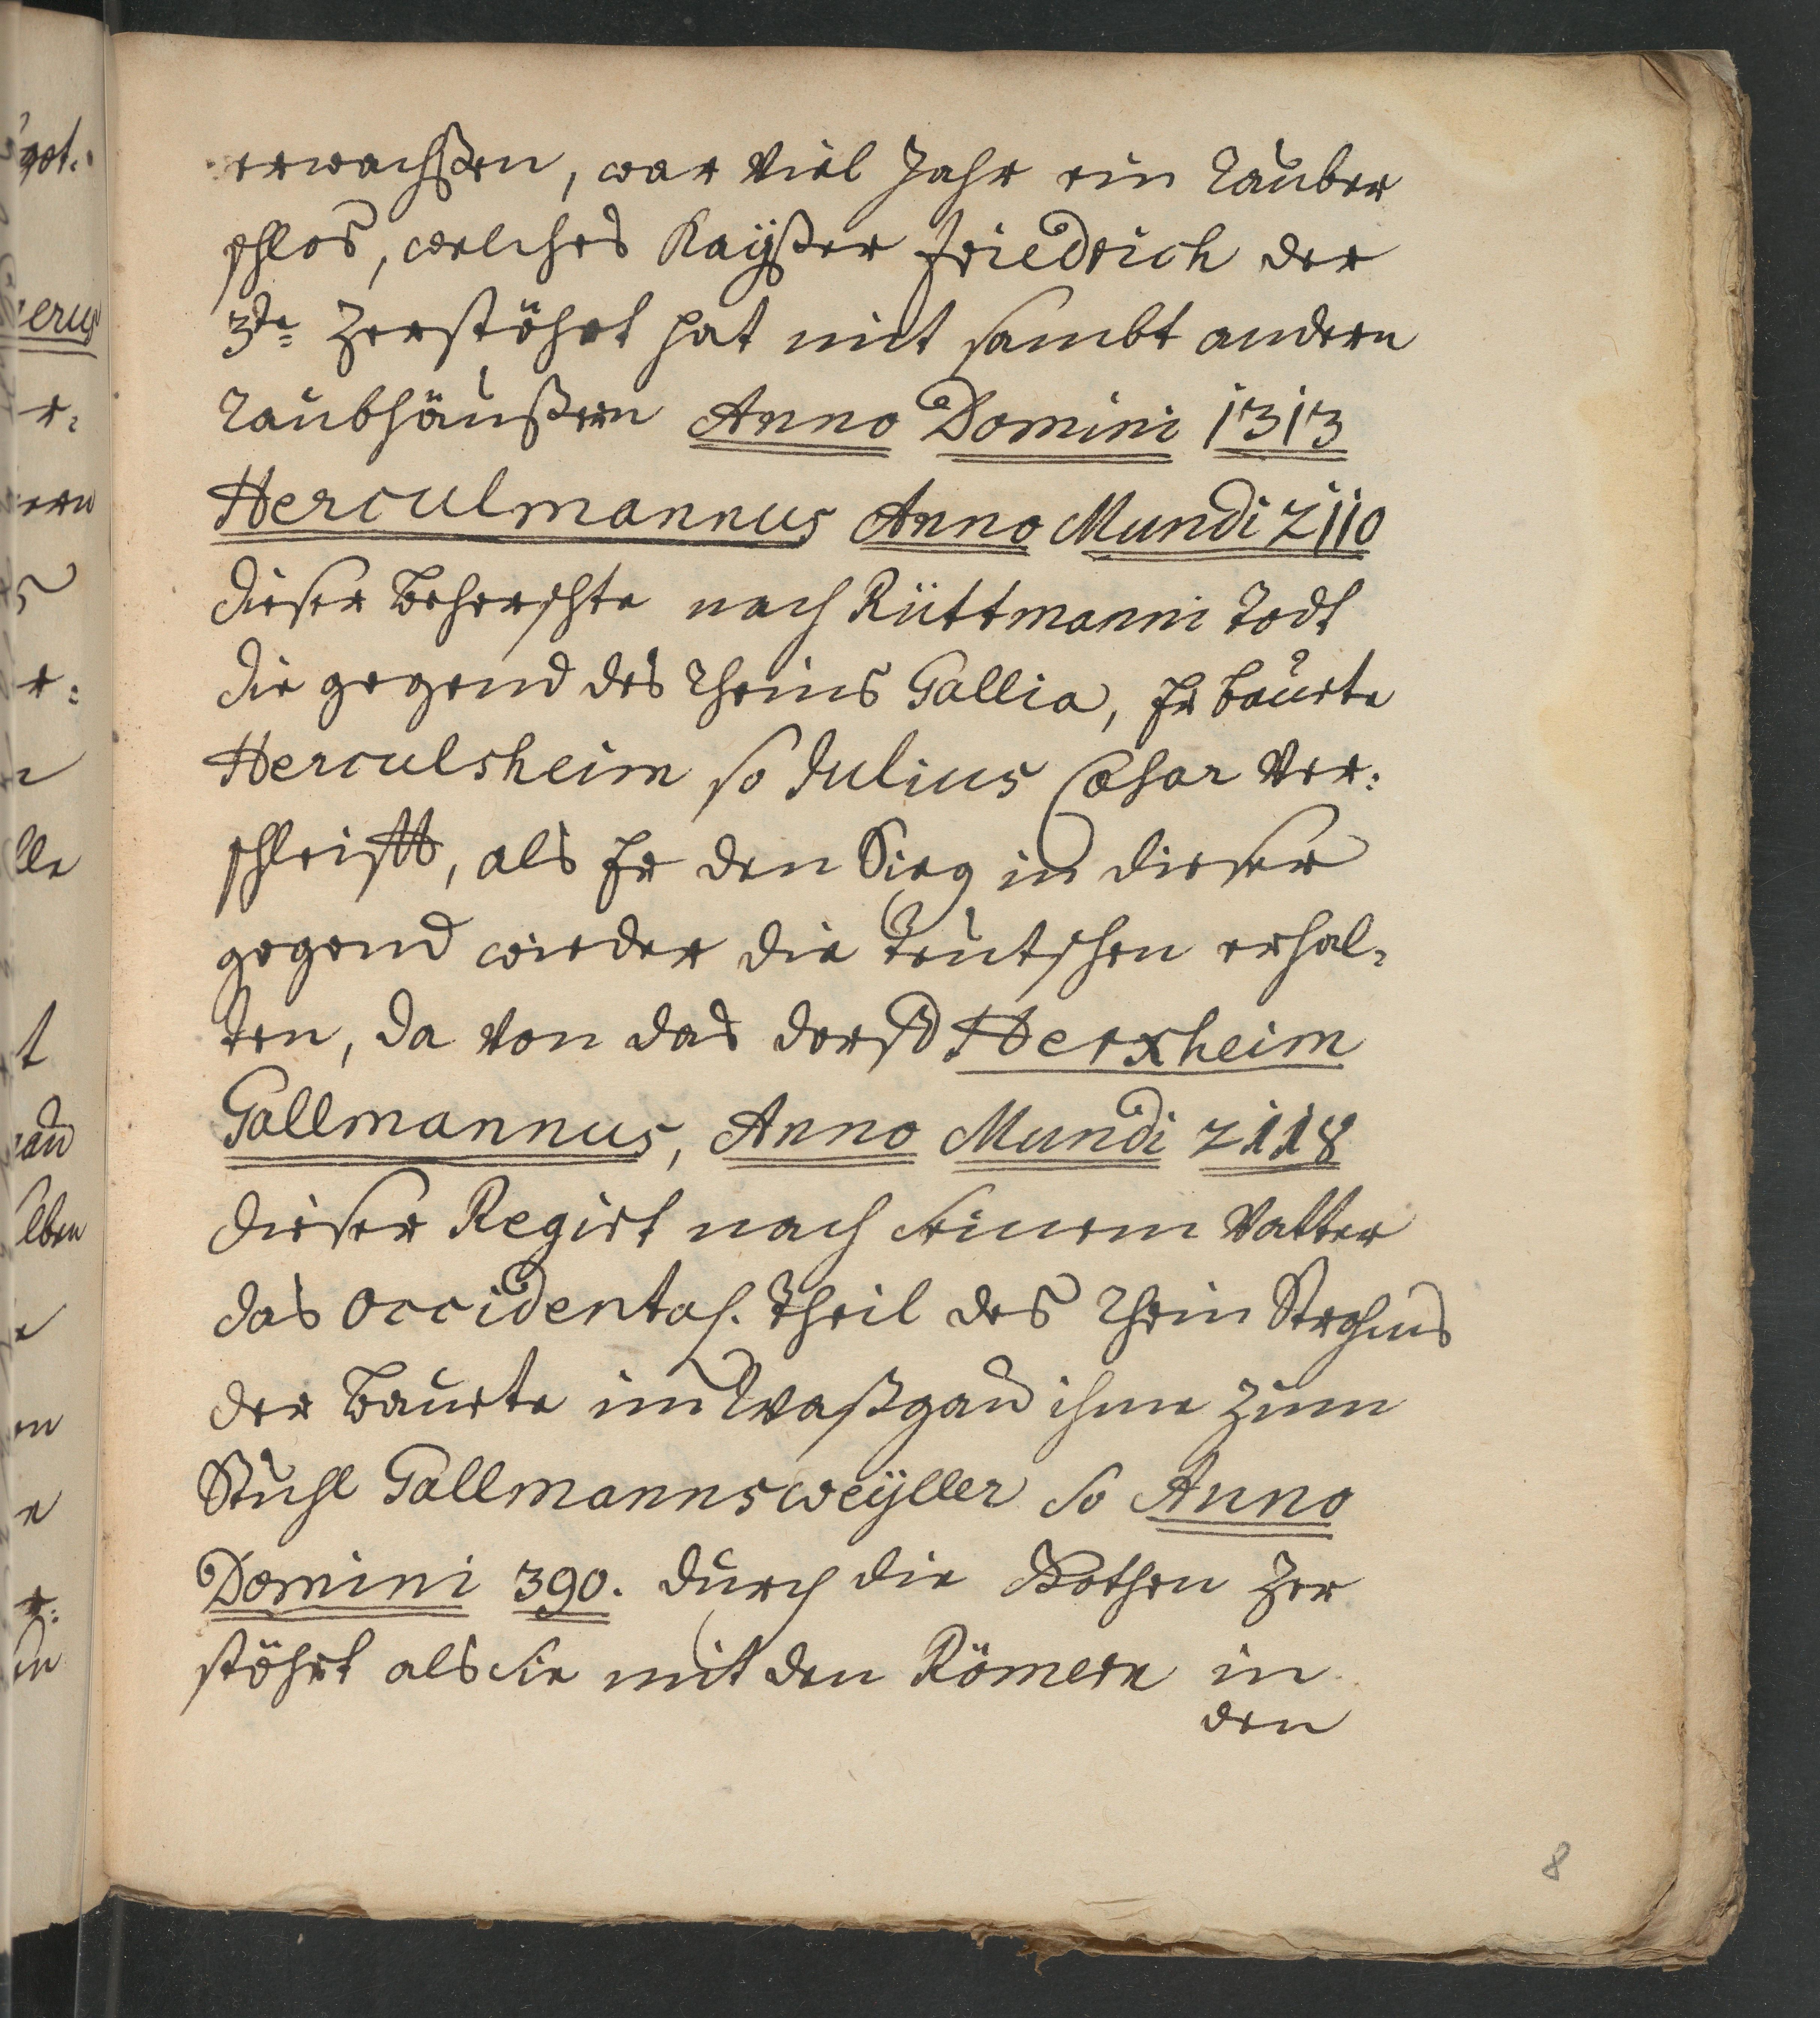 erwachßen, war Viel Jahr ein Rauber
schlos, welches Kayßer Friedrich der
3te Zerstöhrt hat mit sambt andern
Raubhäußern Anno Domini 1313
Herculmannus Anno Mundi 2110
dießer Beherschte nach Rüttmanni Todt
die gegend des Rheins Gallia, Er bauete
Herculsheim so Julius Cæsar Ver:
schleifft, als Er den Sieg in dießer
gegend wieder die Teutschen erhal-
ten, da von das dorff Herxheim
Gallmannus, Anno Mundi 2118
dießer Regirt nach seinem Vatter
das Occidental. theil des Rhein Strohms
der Bauete im Waßgau ihme zum
Stuhl Gallmannsweÿller so Anno
Domini 390. durch die Gothen Zer
stöhrt als sie mit den Römern in
den
8